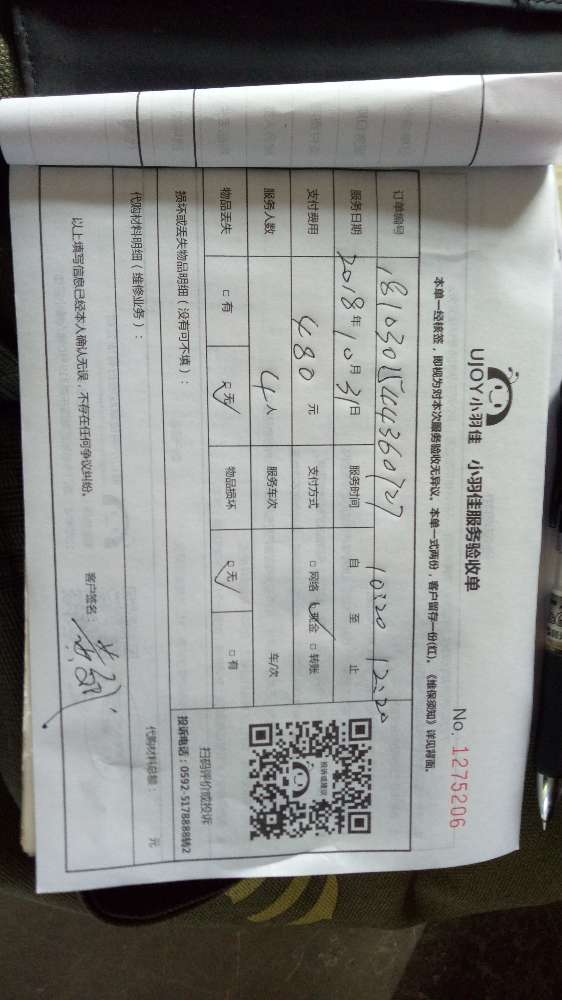 UJOY小羽佳 小羽佳服务验收单
No. 1275206
本单一经核签，即视为对本次服务验收无异议。本单一式两份，客户留存一份(红)。《维保须知》详见背面。
订单编号 18103015444360727
服务日期 2018年10月31日 服务时间 自 10:20 至 12:20 止
支付费用 480元 支付方式 □网络 □现金 □转账
服务人数 4人 服务车次 车/次
物品丢失 □有 □无 物品损坏 □无 □有
投诉或建议
扫码评价或投诉
投诉电话：0592-5178888转2
损坏或丢失物品明细（没有可不填）：
代购材料明细（维修业务）：
代购材料总额： 元
以上填写信息已经本人确认无误，不存在任何争议纠纷。
客户签名：